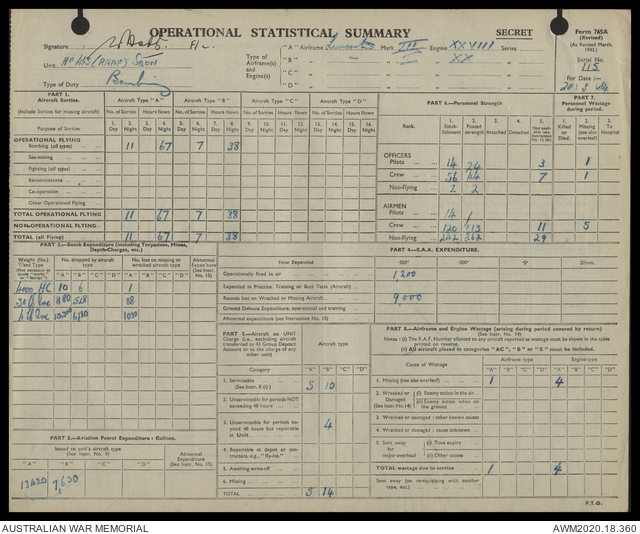 OPERATIONAL STATISTICAL SUMMARY
SECRET
Form 765A
(Revised)
(As Revised March, 1943.)
Signature
F/L
"A" Airframe Lancaster Mark III Engine XXVIII Series
Serial No.
115
Unit No 463 (RAAF) Sqdn
Type of Airframe(s) and Engine(s)
"B" " - " I " XX "
"C" " " " "
"D" " " " "
For Date :—
Type of Duty Bombing
PART 1.
Aircraft Sorties.
(Include Sorties for missing aircraft)
Purpose of Sorties
Aircraft Type "A" Aircraft Type "B" Aircraft Type "C" Aircraft Type "D"
No. of Sorties Hours flown No. of Sorties Hours flown No. of Sorties Hours flown No. of Sorties Hours flown
1. 2. 3. 4. 5. 6. 7. 8. 9. 10. 11. 12. 13. 14. 15. 16.
Day Night Day Night Day Night Day Night Day Night Day Night Day Night Day Night
OPERATIONAL FLYING
Bombing (all types) 11 67 7 38
Sea-mining
Fighting (all types)
Reconnaissance
Co-operation
Other Operational Flying
TOTAL OPERATIONAL FLYING 11 67 7 38
NON-OPERATIONAL FLYING
TOTAL (all Flying) 11 67 7 38
PART 6.—Personnel Strength
Rank. Establishment Posted strength Attached Detached
1. 2. 3. 4. 5.
OFFICERS
Pilots 14 24 3
Crew 56 44 7
Non-flying 2 2
AIRMEN
Pilots 14 1
Crew 120 113 11
Non-flying 242 262 29
PART 7.
Personnel Wastage during period.
1. Killed or Died.
2. Missing (see also overleaf)
3. To Hospital
1
1
5
PART 2.—Bomb Expenditure (including Torpedoes, Mines, Depth-Charges, etc.)
Weight (lbs.) and Type
No. dropped by aircraft type
No. lost on missing or wrecked aircraft type
Abnormal Expenditure (See Instr. 15)
"A" "B" "C" "D" "A" "B" "C" "D"
4000 HC 10 6 1
30 lb Inc 880 528 88
4 lb Inc 10300 6180 1030
PART 3.—Aviation Petrol Expenditure : Gallons.
Issued to unit's aircraft type
(See Instr. No. 9)
Abnormal Expenditure
(See Instr. 15)
"A" "B" "C" "D"
13420 7,630
PART 4.—S.A.A. EXPENDITURE.
How Expended
·303" ·300" ·5" 20mm.
Operationally fired in air 1,200
Expended in Practice, Training or Butt Tests (Aircraft)
Rounds lost on Wrecked or Missing Aircraft 9,000
Ground Defence Expenditure, operational and training
Abnormal expenditure (see Instruction No. 15)
PART 5.—Aircraft on UNIT Charge (i.e., excluding aircraft transferred to 43 Group Deposit Account or to the charge of any other unit)
Aircraft type
Category "A" "B" "C" "D"
1. Serviceable (See Instr. 11 (i).) 5 10
2. Unserviceable for periods NOT exceeding 48 hours
3. Unserviceable for periods beyond 48 hours but repairable at Unit 4
4. Repairable at depot or contractors, e.g., "fly-ins."
5. Awaiting write-off
6. Missing
TOTAL 5 14
PART 8.—Airframe and Engine Wastage (arising during period covered by return)
(See Instr. No. 14)
Notes : (i) The R.A.F. Number allotted to any aircraft reported as wastage must be shown in the table printed on reverse.
(ii) All aircraft placed in categories "AC," "B" or "E" must be included.
Cause of Wastage
Airframe type Engine type
"A" "B" "C" "D" "A" "B" "C" "D"
1. Missing (see also overleaf) 1 4
2. Wrecked or Damaged (See Instr. No.14) (i) Enemy action in the air
(ii) Enemy action when on the ground
3. Wrecked or damaged : other known causes
4. Wrecked or damaged : cause unknown
5. Sent away for major overhaul (i) Time expiry
(ii) Other causes
TOTAL wastage due to service 1 4
Sent away (on re-equipping with another type, etc.)
P.T.O.
AUSTRALIAN WAR MEMORIAL
AWM2020.18.360